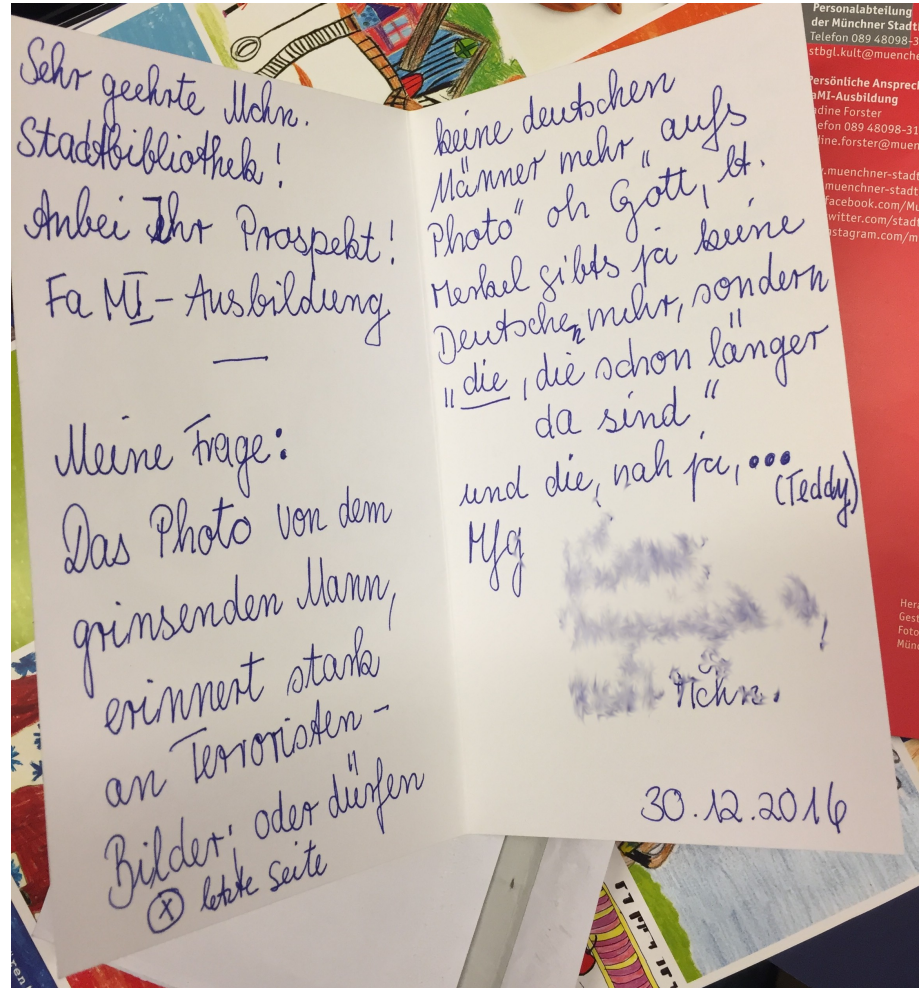 Sehr geehrte Mchn.
Stadtbibliothek!
Anbei Ihr Prospekt!
FaMI-Ausbildung
Meine Frage:
Das Photo von dem
grinsenden Mann,
erinnert stark
an Terroristen-
Bilder; oder dürfen
(x) letzte Seite
keine deutschen
Männer mehr "aufs
Photo" oh Gott, lt.
Merkel gibts ja keine
Deutschen mehr, sondern
"die, die schon länger
da sind"
und die, nah ja, ...
(Teddy)
Mfg
Mchn.
30.12.2016
Personalabteilung
der Münchner Stadt
Telefon 089 48098-3
stbgl.kult@muenche
Persönliche Ansprech
aMI-Ausbildung
dine Forster
efon 089 48098-31
ine.forster@muen
.muenchner-stadt
muenchner-stadt
facebook.com/Mu
witter.com/stadt
nstagram.com/m
Her
Gest
Foto
Münc